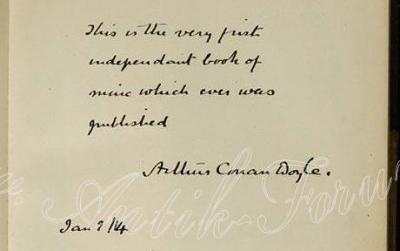 This is the very first
independant book of
mine which ever was
published
Arthur Conan Doyle.
Jan 9/14
Antik-Forum